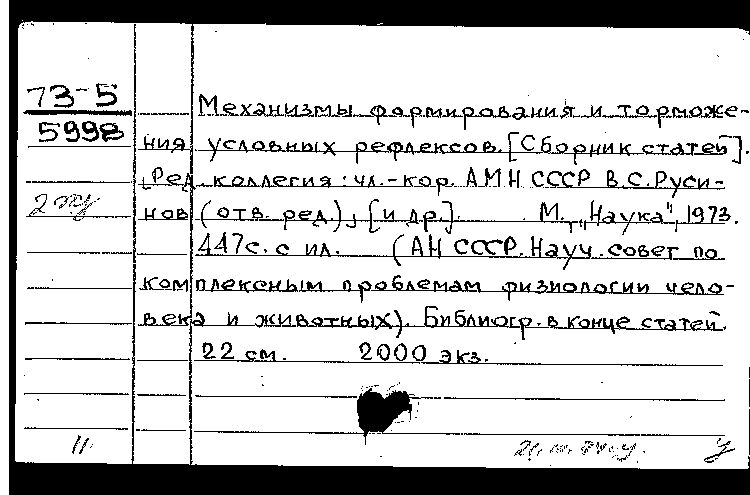 73-5
5998
Механизмы формирования и торможе-
ния условных рефлексов. [Сборник статей].
[Ред. коллегия: чл.-кор. АМН СССР В.С. Руси-
нов (отв. ред.), [и др.]. М., "Наука", 1973.
447с. с ил. (АН СССР. Науч. совет по
комплексным проблемам физиологии чело-
века и животных). Библиогр. в конце статей.
22 см. 2000 экз.
11.